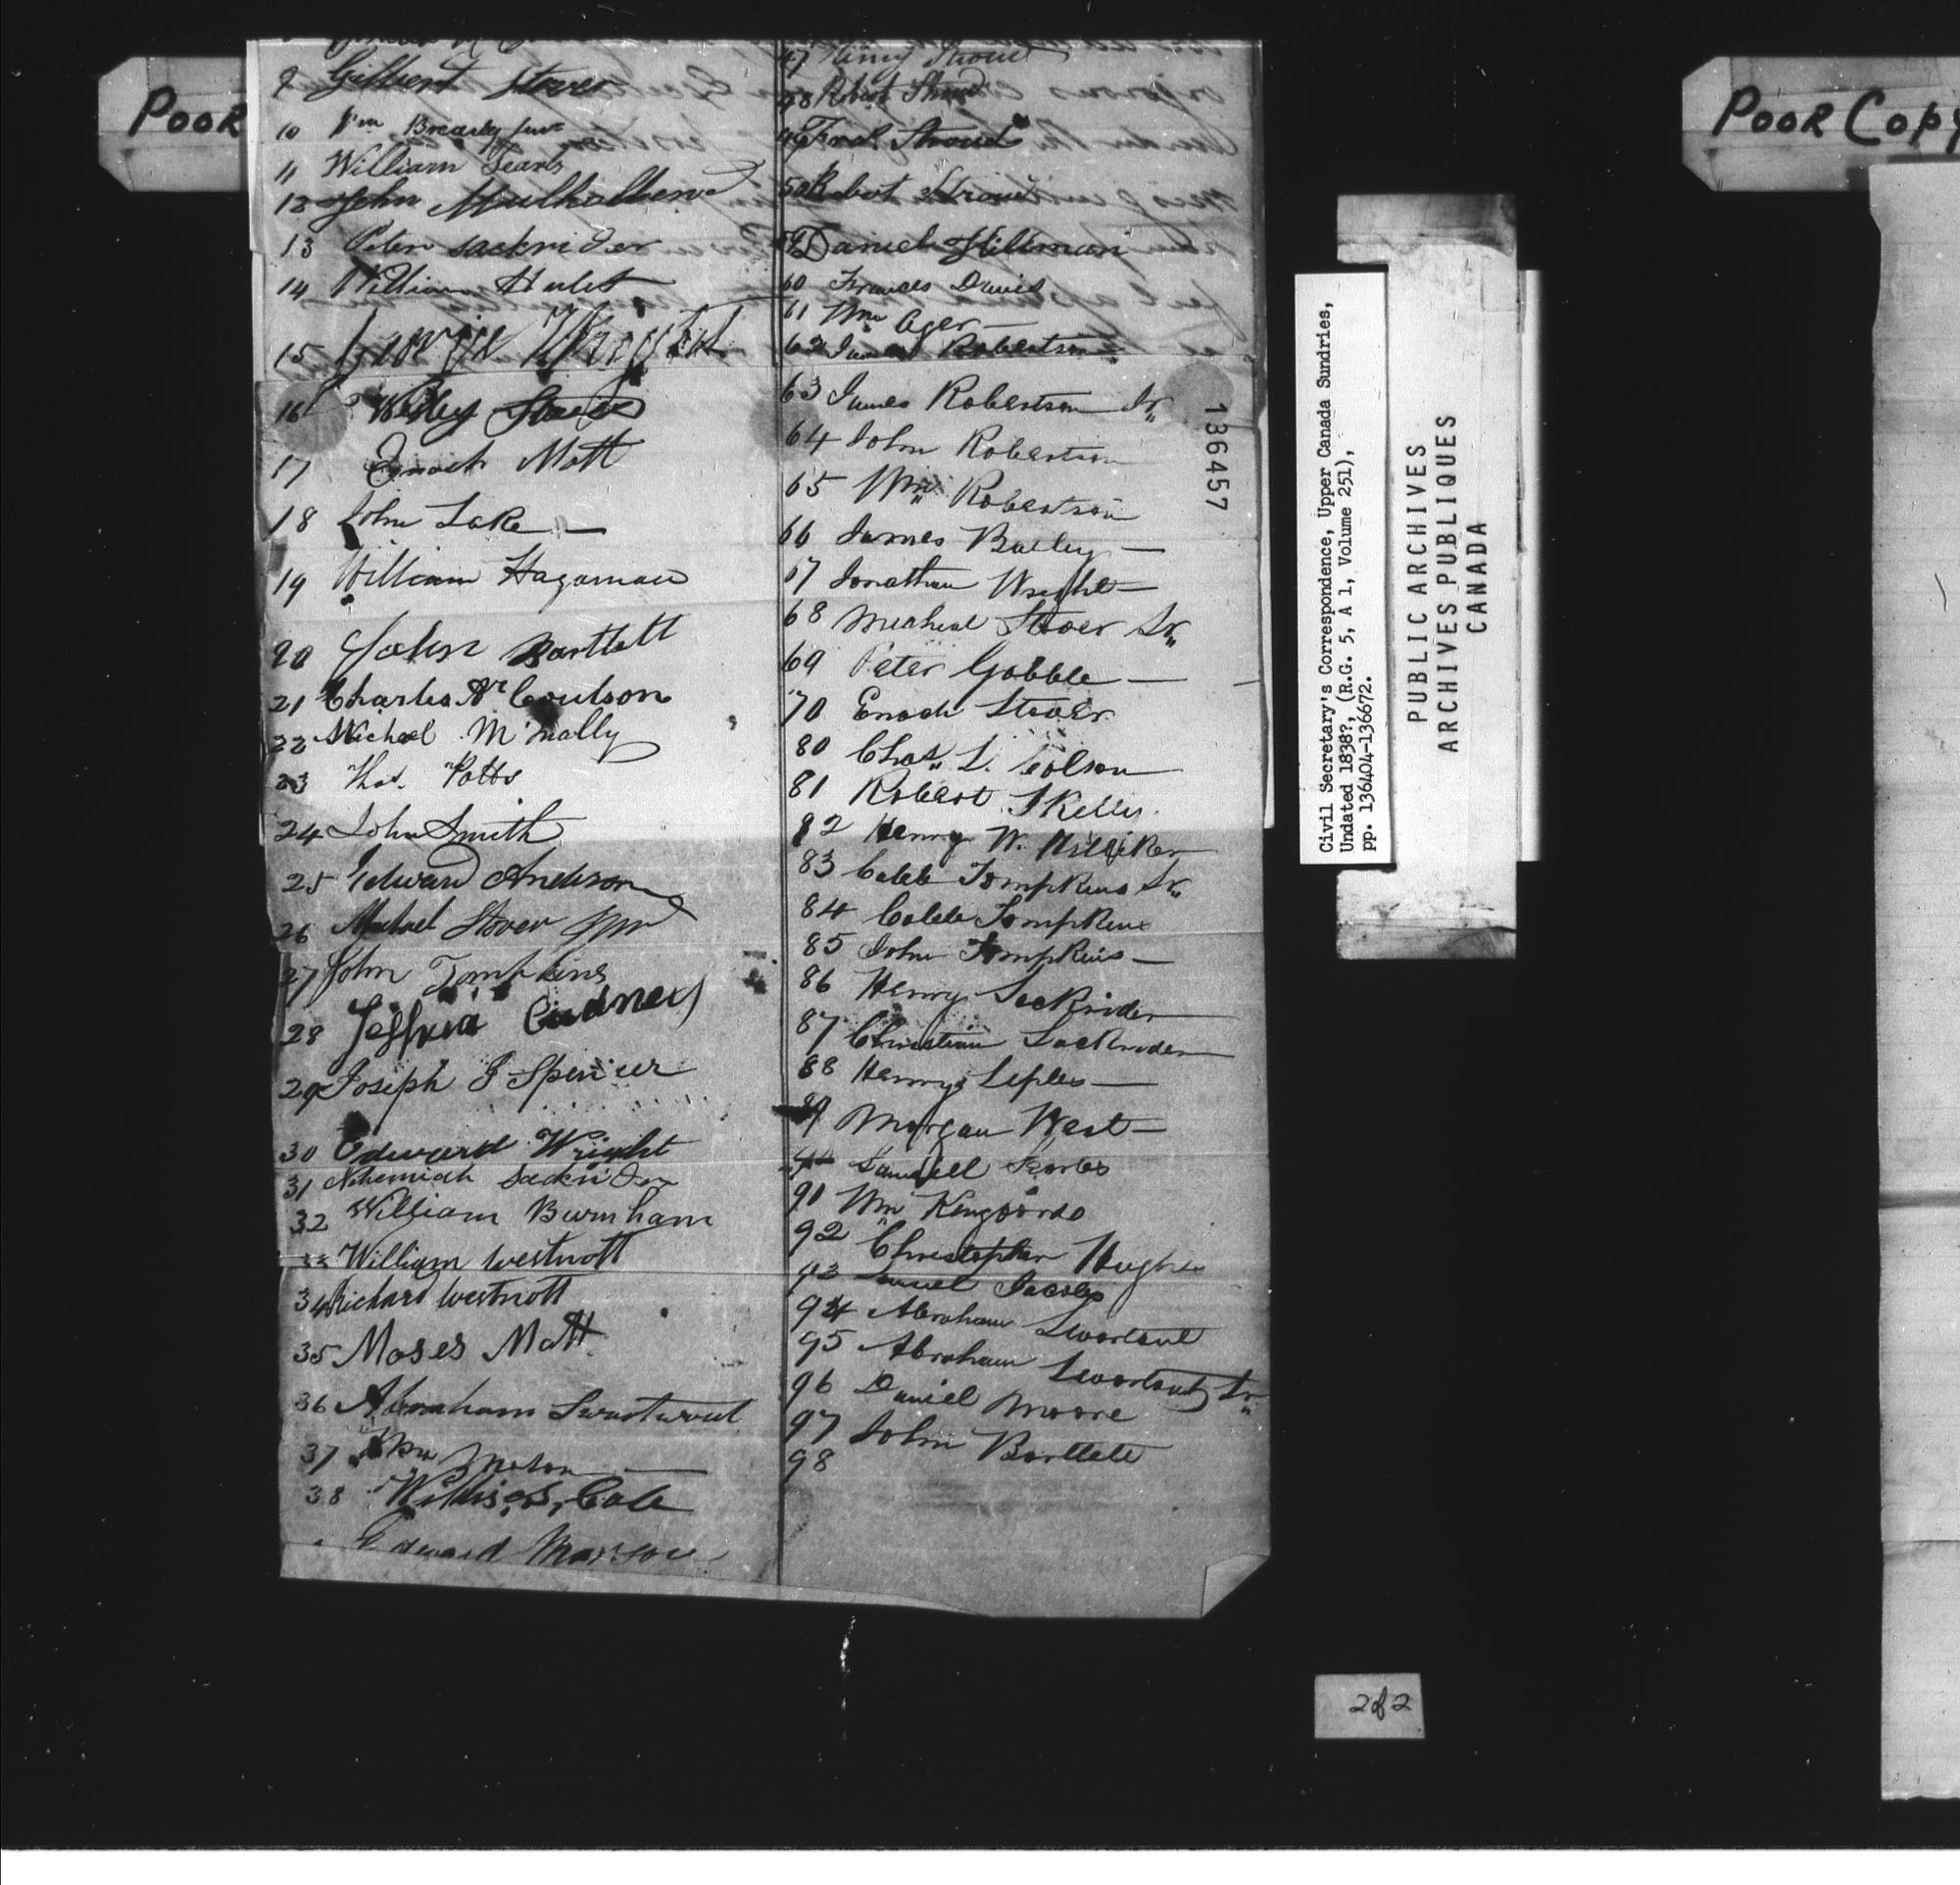 POOR
9 Gilbert Stover
10 Wm Brearly Junr
11 William Searls
12 John Mulholland
13 Peter Sackrider
14 William Hulet
15 Wright
16 Stover
17 Enoch Mott
18 John Lake —
19 William Hagaman
20 John Bartlett
21 Charles Coulson
22 Micheal McNally
23 Thos. Potts
24 John Smith
25 Edward Anderson
26 Michael Stover
27 John Tompkins
28 Cudney
29 Joseph J Spencer
30 Edward Wright
31 Nehemiah Sackrider
32 William Burnham
33 William Westnott
34 Richard Westnott
35 Moses Mott
36 Abraham Swartwout
37 Wm Mason —
38 Cole
Edward
47 Henry Stroud
48 Robert Stroud
49 Stroud
50 Robert Stroud
59 Daniel Stillman
60 Frances Davis
61 Wm Ager —
62 James Robertson
63 James Robertson Jr,,
64 John Robertson
65 Wm Robertson
66 James Bailey —
67 Jonathan Wright —
68 Micheal Stover Sr,,
69 Peter Gobble —
70 Enoch Stover
80 Chas,, L. Colson
81 Robert Skelly
82 Henry W.
83 Caleb Tompkins Sr,,
84 Caleb Tompkins
85 John Tompkins —
86 Henry Sackrider
87 Christian Sackrider
88 Henry —
89 Morgan West —
Searles
91 Wm
92 Christopher Hughes
93
94 Abraham Swartout
95 Abraham Swartout Sr,,
96 Daniel Moore
97 John Bartlett
98
136457
Civil Secretary's Correspondence, Upper Canada Sundries,
Undated 1838?, (R.G. 5, A 1, Volume 251),
pp. 136404-136672.
PUBLIC ARCHIVES
ARCHIVES PUBLIQUES
CANADA
POOR COPY
2 of 2